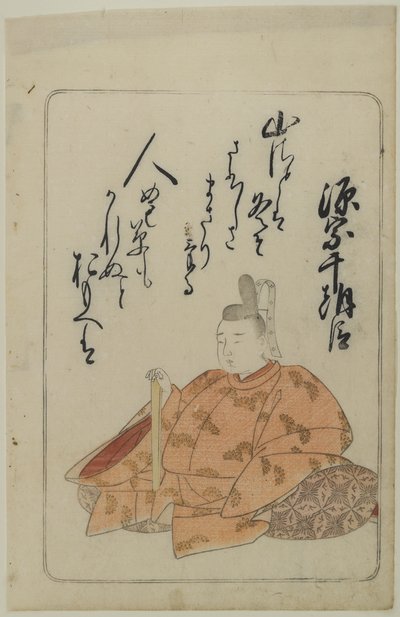 源宗于朝臣
山さとは
冬そ
さひしさ
まさり
ける
人めも草も
かれぬと
おもへは